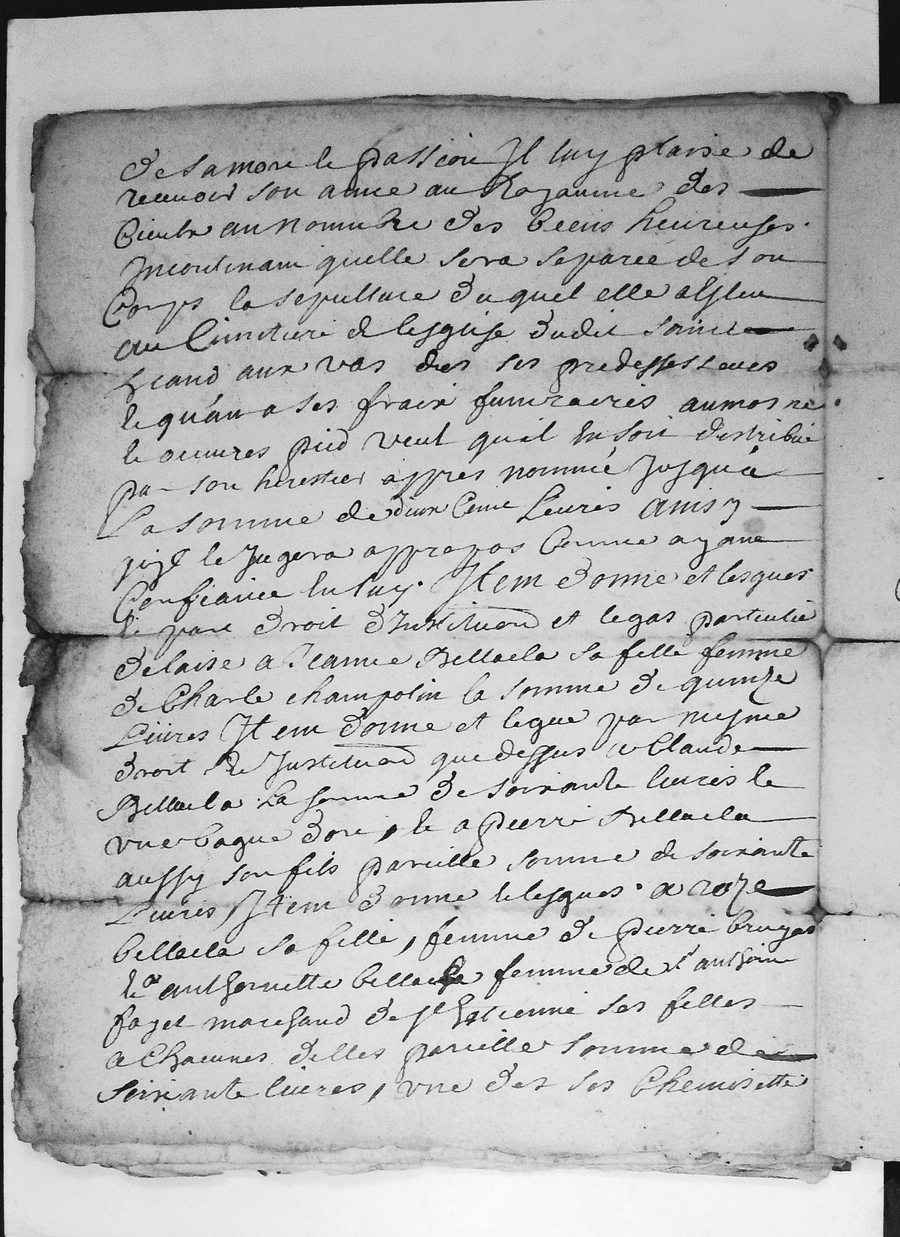 de sa mort le passion Jl luy plaise de
recevoir son ame au Royaume des
Cieulx au nombre des biens heureuses
Jncontinant quelle sera separée de son
Corps la sepulture duquel elle a esleu
au Cimetiere de lesglise dudit saint
au vas des ses predessesseurs
le quan a ses fraix funeraires aumosne
le ouvres pied veut quil en soit distribué
par son heretier appres nommé Jusqu'a
La somme de deux Cent Livres ainsy
quil le Jugera appropos Comme ayant
Confiance en luy. Jtem donne et lesgue
par droit d'Institution et legas particulie
delaise a Jeanne Bellacla sa fille femme
de Charle Champolin la somme de quinze
Livres Jtem donne et legue par mesme
droit de Justitution que dessus a Claude
Bellacla La somme de soixante livres le
vne bague dore, le a pierre Bellacla
aussy son fils pareille somme de soixante
Livres, Jtem donne lesgue a roze
bellacla sa fille, femme de pierre
le a anthoinette bellacla femme de St anthoine
fayet marchand de St Estienne ses filles
a Chacunes delles pareille somme de
soixante livres, vne des ses Chemisette